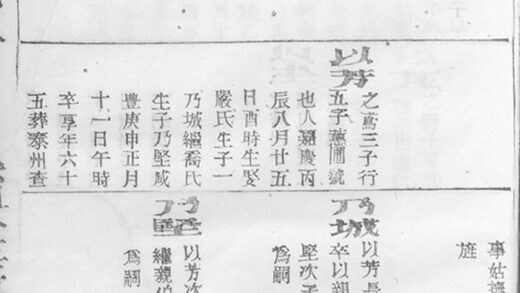 以芳
之鳶三子行
五字蕙圃號
也人嘉慶丙
辰八月廿五
日酉時生娶
嚴氏生子一
乃城繼喬氏
生子乃堅咸
豐庚申正月
十一日午時
卒享年六十
五葬泰州查
事姑
旌
乃城
以芳長
卒以親
堅次子
為嗣
乃堅
以芳次
繼親伯
為嗣